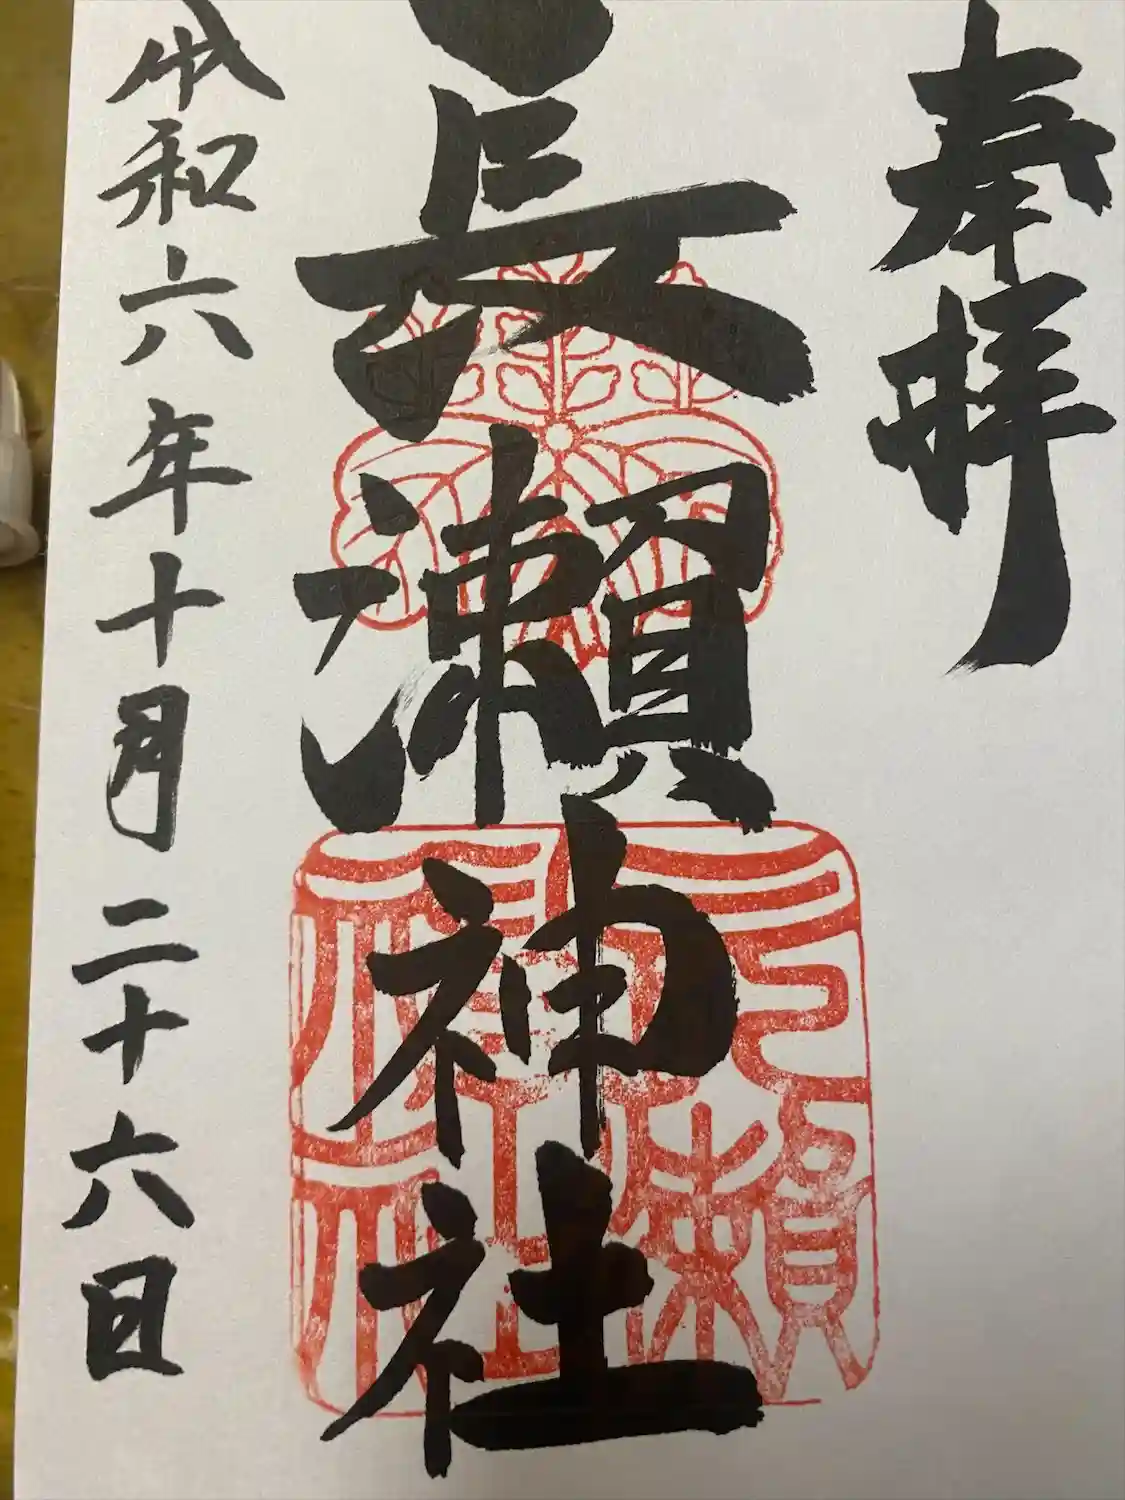 奉拝
長瀬神社
令和六年十月二十六日
長瀬神社